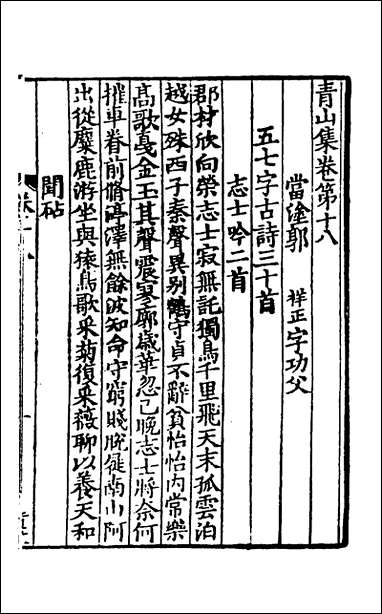 青山集卷第十八
當塗郭 祥正字功父
五七字古詩三十首
志士吟二首
郡材欣向榮志士寂無託獨鳥千里飛天末孤雲泊
越女殊西子秦聲異別鶴守貞不辭貧怡怡内常樂
高歌戛金玉其聲震寥廓歲華忽已晚志士將奈何
摧車眷前脩渟澤無餘波知命守窮賤脫屣南山阿
出從麋鹿游坐與猿鳥歌采菊復采薇聊以養天和
聞砧